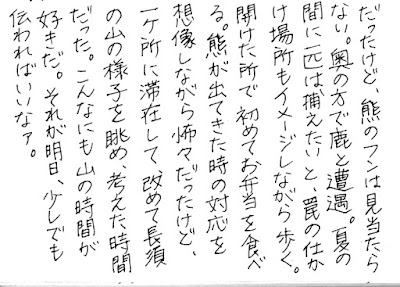 だったけど、熊のフンは見当たら
ない。奥の方で鹿と遭遇。夏の
間に一匹は捕えたいと、罠の仕か
け場所もイメージしながら歩く。
開けた所で初めてお弁当を食べ
る。熊が出てきた時の対応を
想像しながら怖々だったけど、
一ヶ所に滞在して、改めて長須
の山の様子を眺め、考えた時間
だった。こんなにも山の時間が
好きだ。それが明日、少しでも
伝わればいいなァ。